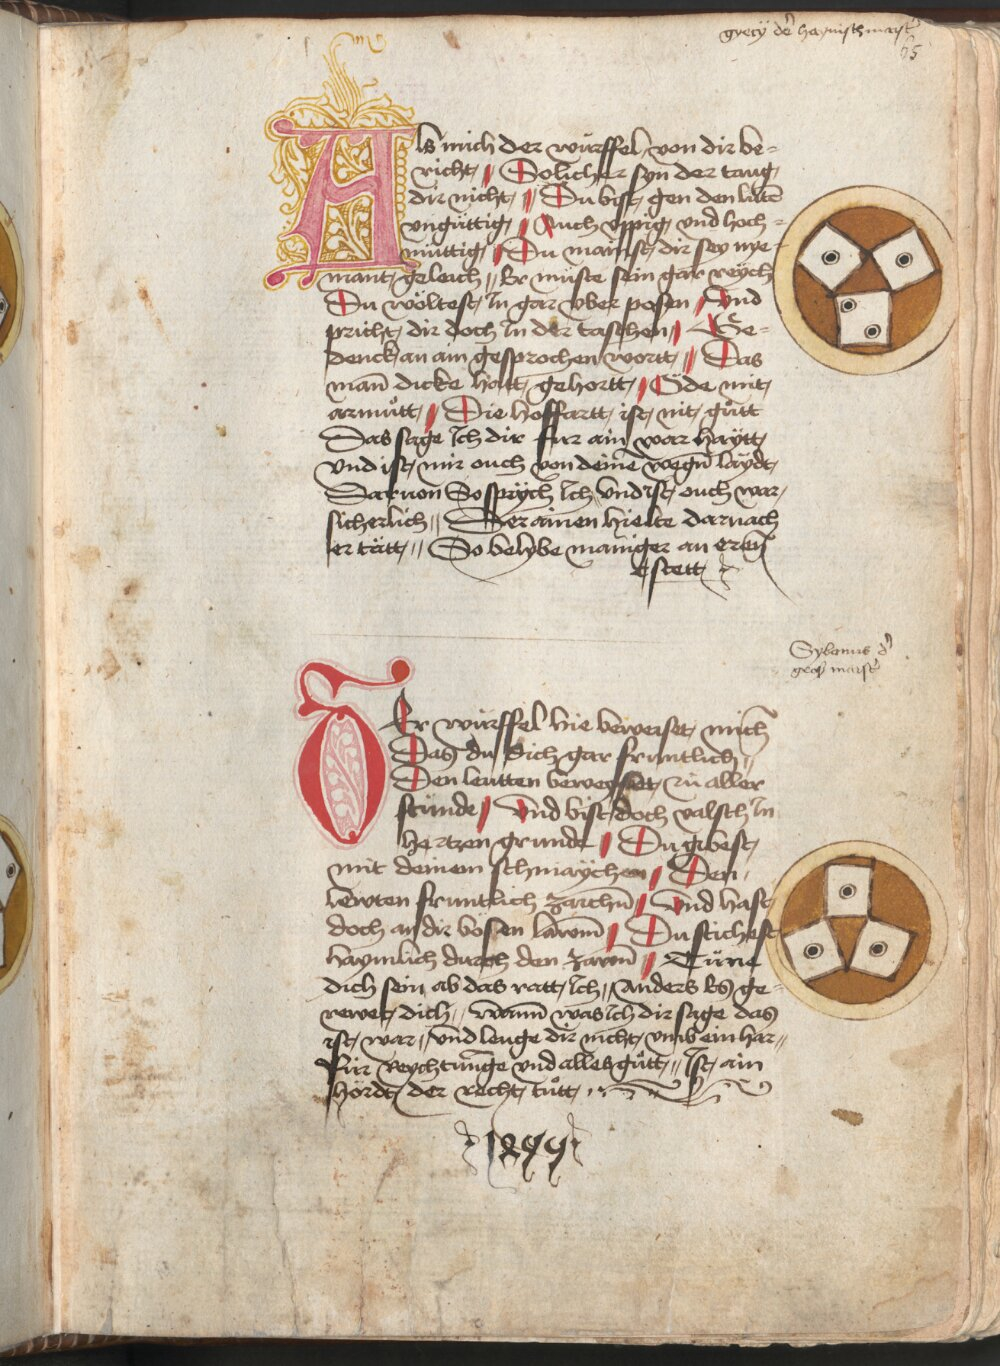 75
Als mich der würffel von dir be-
richt // Solicher syn der taug
dir nicht // Du bist gen den lütē
vngüttig // Auch üppig vnd hoch-
müttig // Du mainst dir sey nye-
mant geleich // Er müste sein gar reych
Du wöltest In gar vber posen // Vnd
pricht dir doch In der taschen // Ge-
denck an ain gesprochen wortt // Das
man̄ dicke hatt gehortt // Öde mit
armůtt // Die hoffartt ist nit gůtt
Das sage Ich dir fur ain war haÿtt
Vnd ist mir ouch von deinē wegn̄ laydt
Daruon So sprÿch Ich Vnd ist ouch war
sicherlich // Wer ainen hielte darnach
er tätt // So belybe mainiger an eren
stett
Sybanus
DEr würffel hie beweiset mich
Das du dich gar fruntlich //
Den leutten beweysset zů aller
stunde // Vnd bist doch valsch In
hertzen grunde // Du gibest
mit deinem schmaÿchen // Den
lewten fruntlich zaichn̄ // Vnd hast
doch an dir bösen
Du stichest
haymlich durch den zawn̄ // Tüne
dich sein ab das ratt Ich // Anders Es ge-
rewet dich // wann̄ was Ich dir sage das
ist war // vnd leuge dir nicht vmb ein har //
Für Reychtumge vnd alles gůtt // Ist ain
hördt der recht tůtt
1899